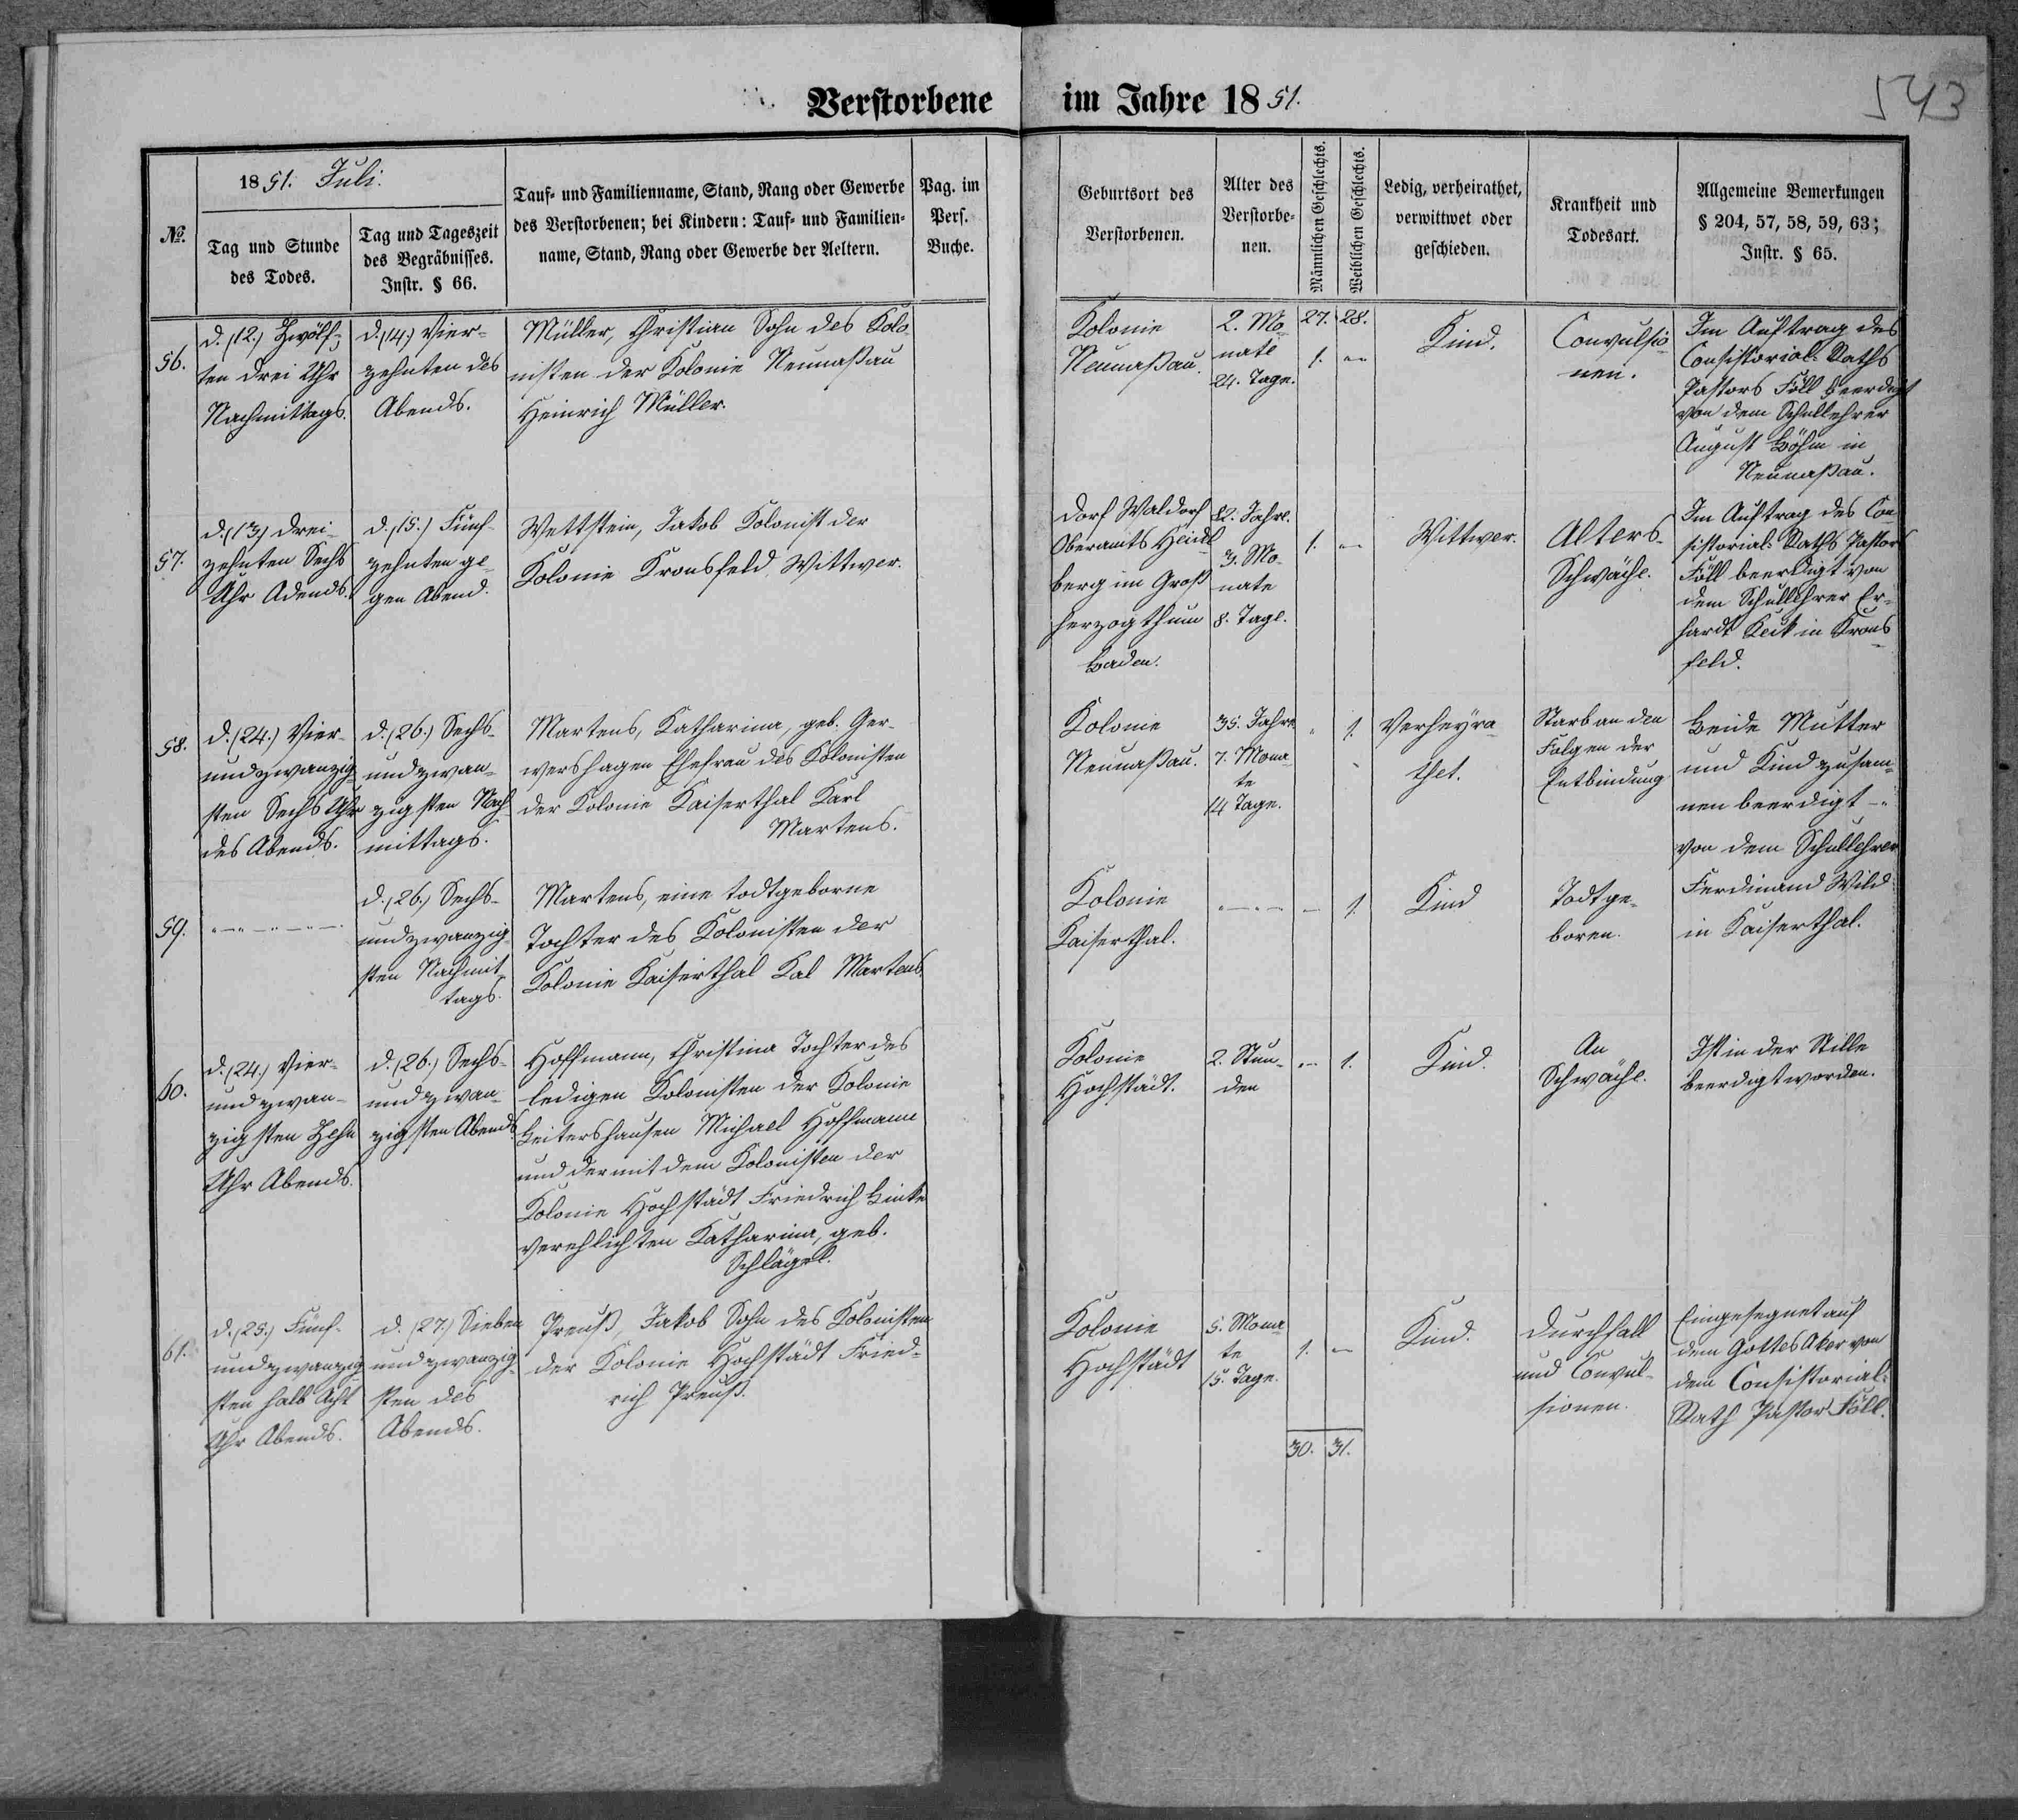 Verstorbene im Jahre 1851.
543
1851. Juli.
№.
Tag und Stunde
des Todes.
Tag und Tageszeit
des Begräbnisses.
Instr. § 66.
Tauf- und Familienname, Stand, Rang oder Gewerbe
des Verstorbenen; bei Kindern: Tauf- und Familien-
name, Stand, Rang oder Gewerbe der Aeltern.
Pag. im
Pers.
Buche.
Geburtsort des
Verstorbenen.
Alter des
Verstorbe-
nen.
Männlichen Geschlechts.
Weiblichen Geschlechts.
Ledig, verheirathet,
verwittwet oder
geschieden.
Krankheit und
Todesart.
Allgemeine Bemerkungen
§ 204, 57, 58, 59, 63;
Instr. § 65.
56.
d. (12.) Zwölf-
ten drei Uhr
Nachmittags.
d. (14.) Vier-
zehnten des
Abends.
Müller, Christian Sohn des Kolo-
nisten der Kolonie Neunaßau
Heinrich Müller.
Kolonie
Neunaßau.
2. Mo-
nate
24. Tage.
27. 28.
1. "-"
Kind.
Convulsio-
nen.
Im Auftrag des
Consistorial-Raths
Pastors Föll beerdigt
von dem Schullehrer
August Böhm in
Neunaßau.
57.
d. (13.) Drei-
zehnten Sechs
Uhr Adends.
d. (15.) Fünf-
zehnten ge-
gen Abend.
Wettstein, Jakob Kolonist der
Kolonie Kronsfeld, Wittwer.
Dorf Waldorf
Oberamts Heidl-
berg im Groß
herzogthum
Baden.
82. Jahre.
3. Mo-
nate
8. Tage.
1. "-"
Wittwer.
Alters-
Schwäche.
Im Auftrag des Con-
sistorial-Raths Pastors
Föll beerdigt von
dem Schullehrer Er-
hardt Keck in Krons-
feld.
58.
d. (24.) Vier-
undzwanzig-
sten Sechs Uhr
des Abends.
d. (26.) Sechs-
undzwan-
zigsten Nach-
mittags.
Martens, Katharina, geb. Ger-
wershagen Ehefrau des Kolonisten
der Kolonie Kaiserthal Karl
Martens.
Kolonie
Neunaßau.
35. Jahre
7. Mona-
te
14 Tage.
" 1.
Verheyra-
thet.
Starb an den
Folgen der
Entbindung
Beide Mutter
und Kind zusam-
men beerdigt -"
von dem Schullehrer
Ferdinand Wild
in Kaiserthal.
59.
"-"-"-"-"
d. (26.) Sechs-
undzwanzig-
sten Nachmit-
tags.
Martens, eine todtgeborne
Tochter des Kolonisten der
Kolonie Kaiserthal Kal Martens.
Kolonie
Kaiserthal.
"-"-" - 1.
Kind
Todtge-
boren.
60.
d. (24.) Vier-
undzwan-
zigsten Zehn
Uhr Abends.
d. (26.) Sechs-
undzwan-
zigsten Abends
Hoffmann, Christina Tochter des
ledigen Kolonisten der Kolonie
Leitershausen Michael Hoffmann
und der mit dem Kolonisten der
Kolonie Hochstädt Friedrich
verehlichten Katharina, geb.
Schlägel.
Kolonie
Hochstädt.
2. Stun-
den
"-" 1.
Kind.
An
Schwäche.
Ist in der Stille
beerdigt worden.
61.
d. (25.) Fünf-
undzwanzig-
sten halb Acht
Uhr Abends.
d. (27.) Sieben
undzwanzig-
sten des
Abends.
Preuß, Jakob Sohn des Kolonisten
der Kolonie Hochstädt Fried-
rich Preuß.
Kolonie
Hochstädt
5. Mona-
te
15. Tage.
1. "-"
Kind.
Durchfall
und Convul-
sionen.
Eingesegnet auf
dem Gottes Aker von
dem Consistorial-
Rath Pastor Föll.
30. 31.